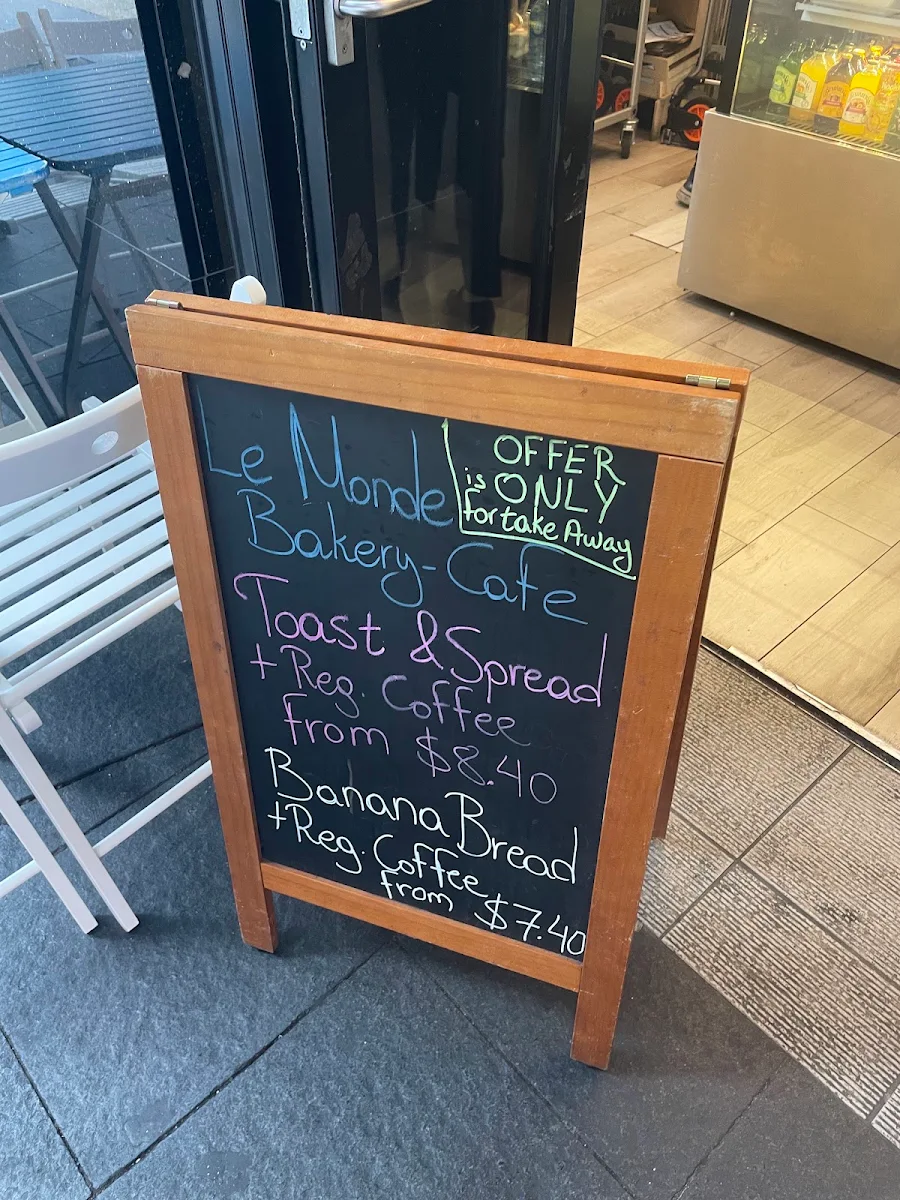 Le Monde
Bakery-Cafe
OFFER
is ONLY
for take Away
Toast & Spread
+ Reg. Coffee
from $8.40
Banana Bread
+ Reg. Coffee
from $7.40